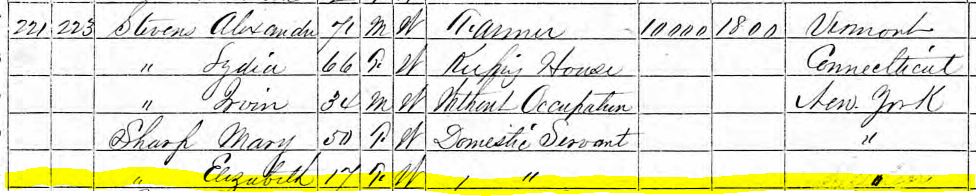 221 223 Stevens Alexander 71 M W Farmer 10000 1800 Vermont
" Lydia 66 F W Keeping House Connecticut
" Irvin 34 M W Without Occupation New York
Sharp Mary 50 F W Domestic Servant "
" Elizabeth 17 F W " "